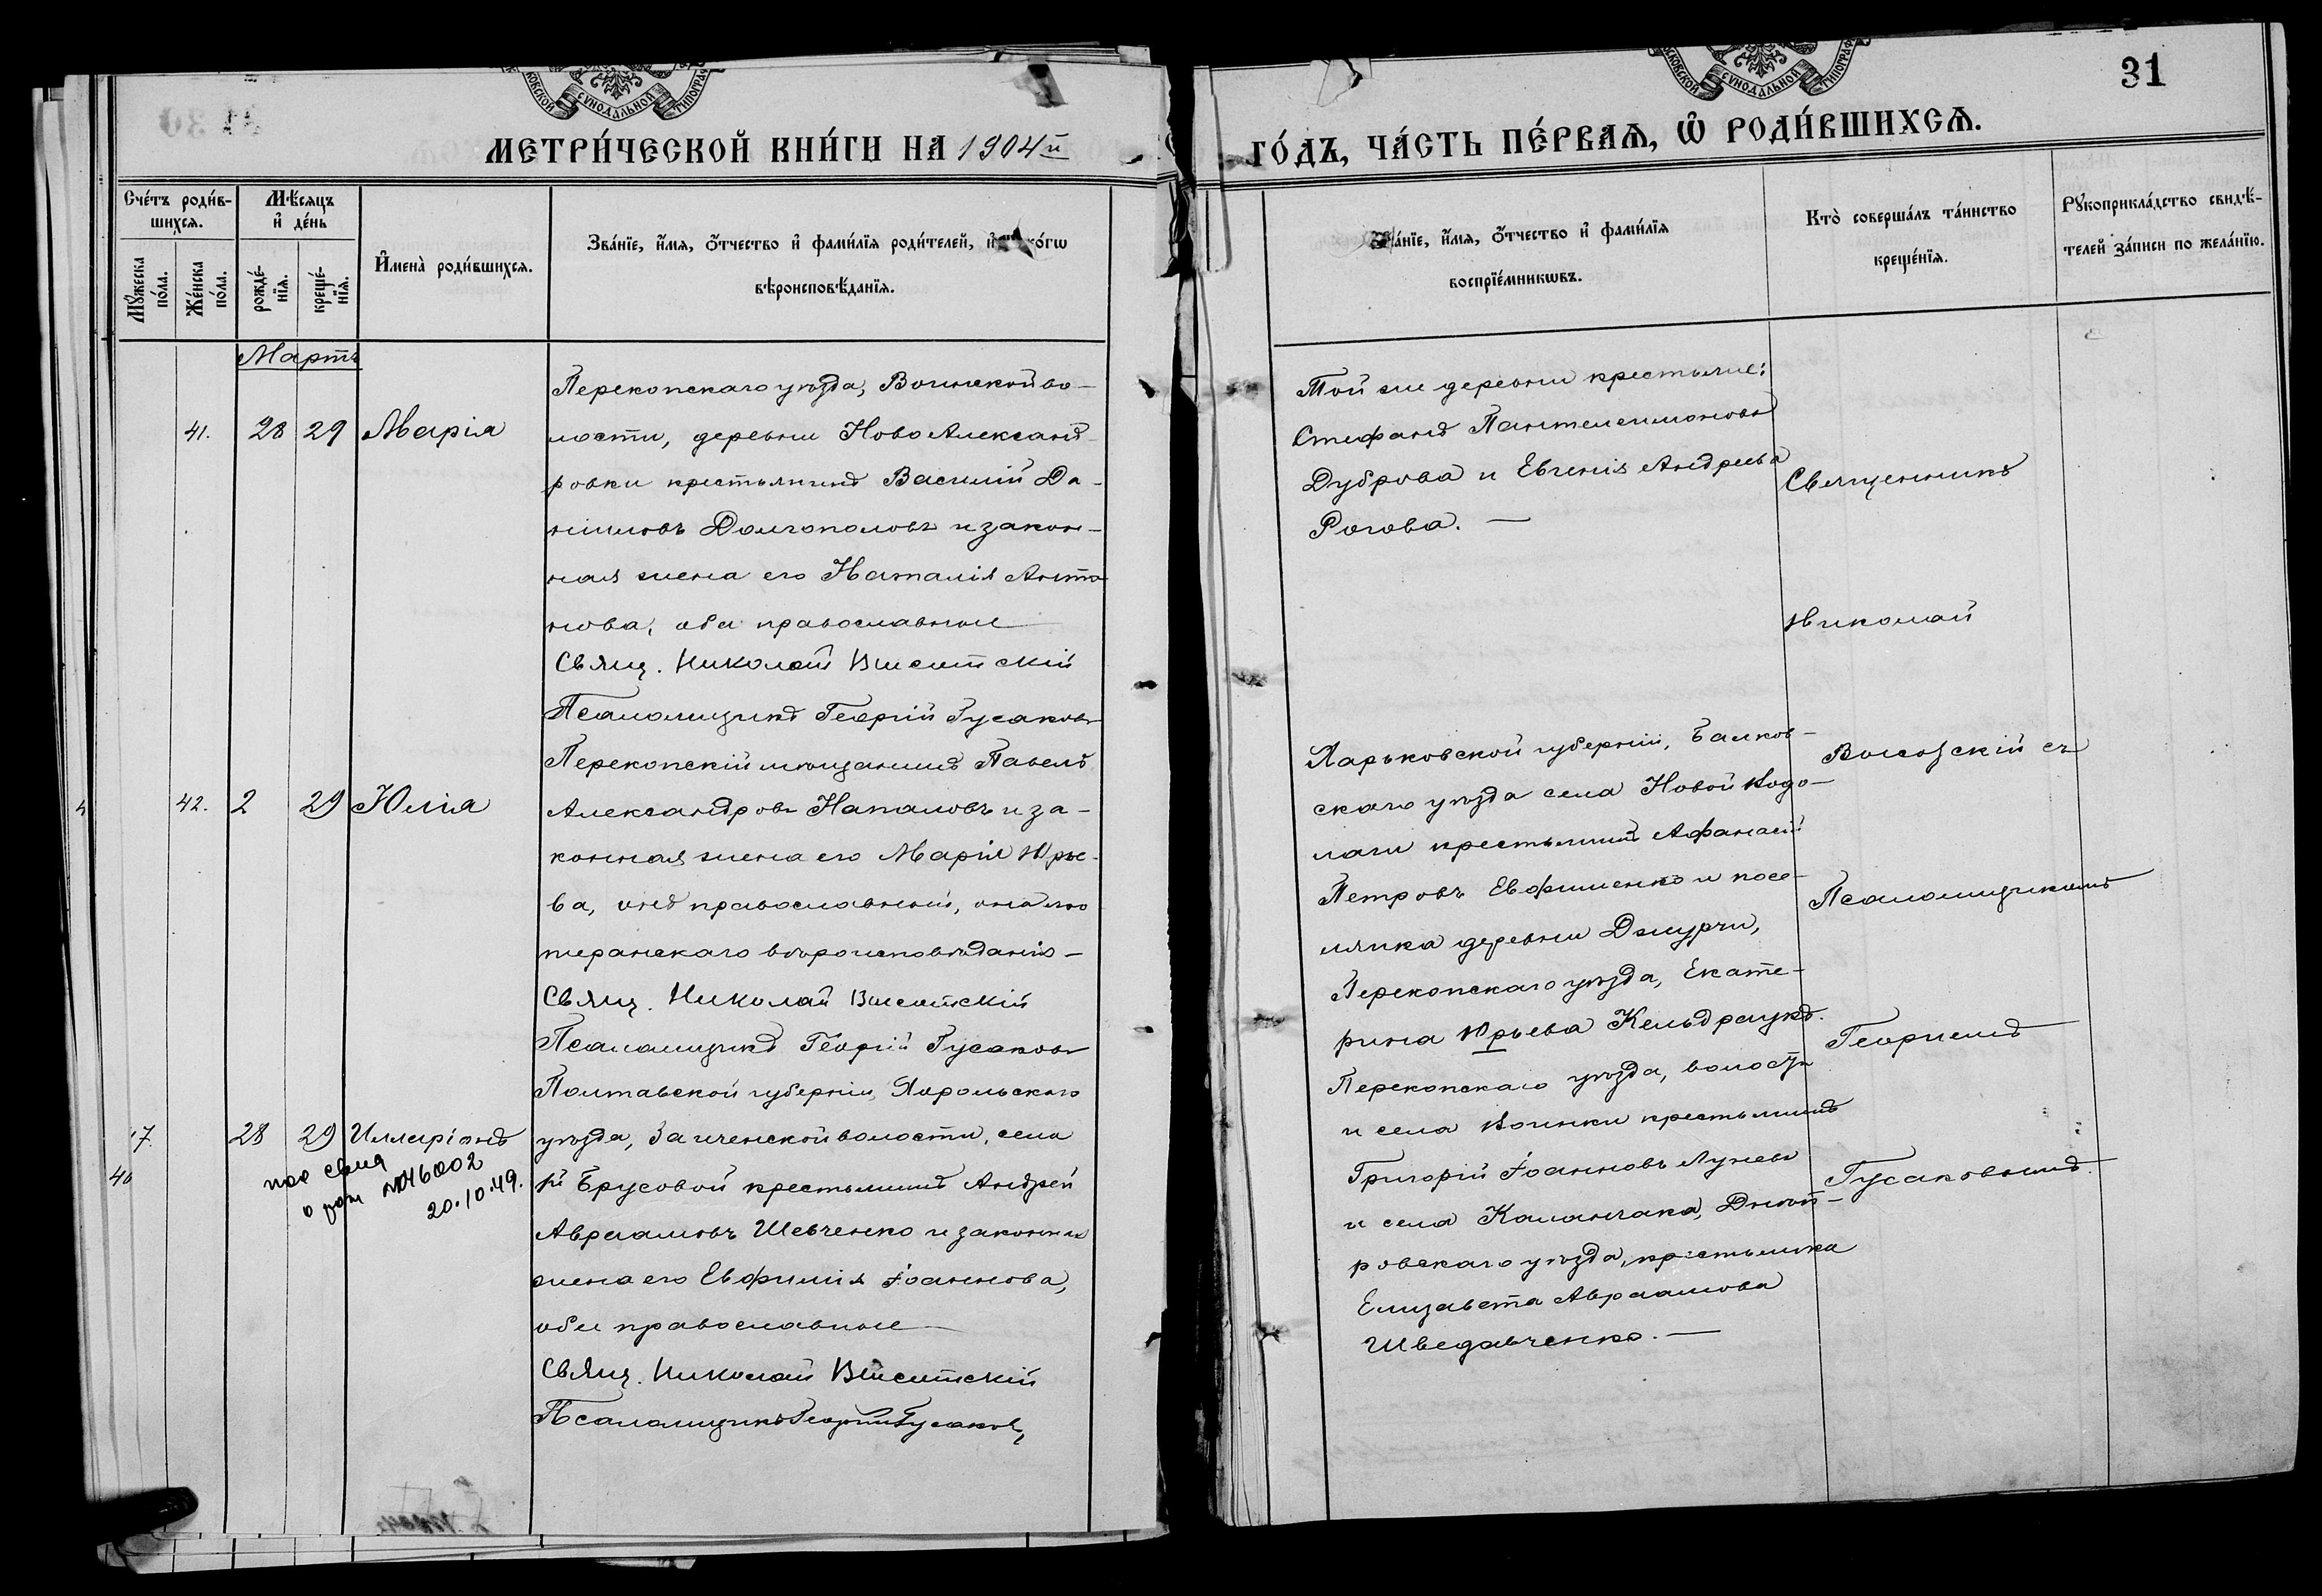 31
МЕТРИ́ЧЕСКОЙ КНИ́ГИ НА 1904й
ГО́ДЪ, ЧА́СТЬ ПЕ́РВАѦ, Ѿ РОДИ́ВШИХСѦ.
Сче́тъ роди́в-
шихсѧ.
Мѣ́сяцъ
и҆ де́нь
Мꙋ́жеска
по́ла.
Же́нска
по́ла.
рожде́-
нїѧ.
креще́-
нїѧ.
И҆мена̀ роди́вшихсѧ.
Зва́нїе, и҆́мѧ, ѻ҆́тчество и҆ фами́лїѧ роди́телей, и҆ ко́гѡ
вѣроисповѣ́данїѧ.
Зва́нїе, и҆́мѧ, ѻ҆́тчество и҆ фами́лїѧ
воспрїе́мникѡвъ.
Кто̀ соверша́лъ та́инство
креще́нїѧ.
Рꙋкоприкла́дство свидѣ́-
телей за́писи по жела́нїю.
Мартъ
41. 28 29 Марія
Перекопскаго уѣзда, Воинской во-
лости, деревни Ново Александ-
ровки крестьянинъ Василій Да-
ніиловъ Долгополовъ и закон-
ная жена его Наталія Анто-
нова, оба православные
Свящ. Николай
Псаломщикъ Георгій Гусаковъ
Той же деревни крестьяне:
Стефанъ Пантелеимоновъ
Дуброва и Евгенія Андреева
Рогова. —
Священникъ
Николай
42. 2 29 Юлія
Перекопскій мѣщанинъ Павелъ
Александровъ Наталовъ и за-
конная жена его Марія Юрье-
ва, онъ православный, она лю
теранскаго вѣроисповѣданія —
Свящ. Николай
Псаломщикъ Георгій Гусаковъ
Харьковской губерніи, Валков-
скаго уѣзда села Новой Водо-
лаги крестьянинъ Афанасій
Петровъ Евфименко и посе-
лянка деревни Джурчи,
Перекопскаго уѣзда, Екате-
рина Юрьева Кельдраукъ.
скій съ
Псаломщикомъ
Георгіемъ
17. 28 29 Илларіонъ
40
№046002
20.10.49.
Полтавской губерніи, Хорольскаго
уѣзда, волости, села
Брусовой крестьянинъ Андрей
Авраамовъ Шевченко и законная
жена его Евфимія Іоаннова,
оба православные
Свящ. Николай
Псаломщикъ Георгій Гусаковъ
Перекопскаго уѣзда, волости
и села Воинки крестьянинъ
Григорій Іоанновъ Луневъ
и села Каланчака, Днѣп-
ровскаго уѣзда, крестьянка
Елизавета Авраамова
Шведавченко. —
Гусаковымъ.